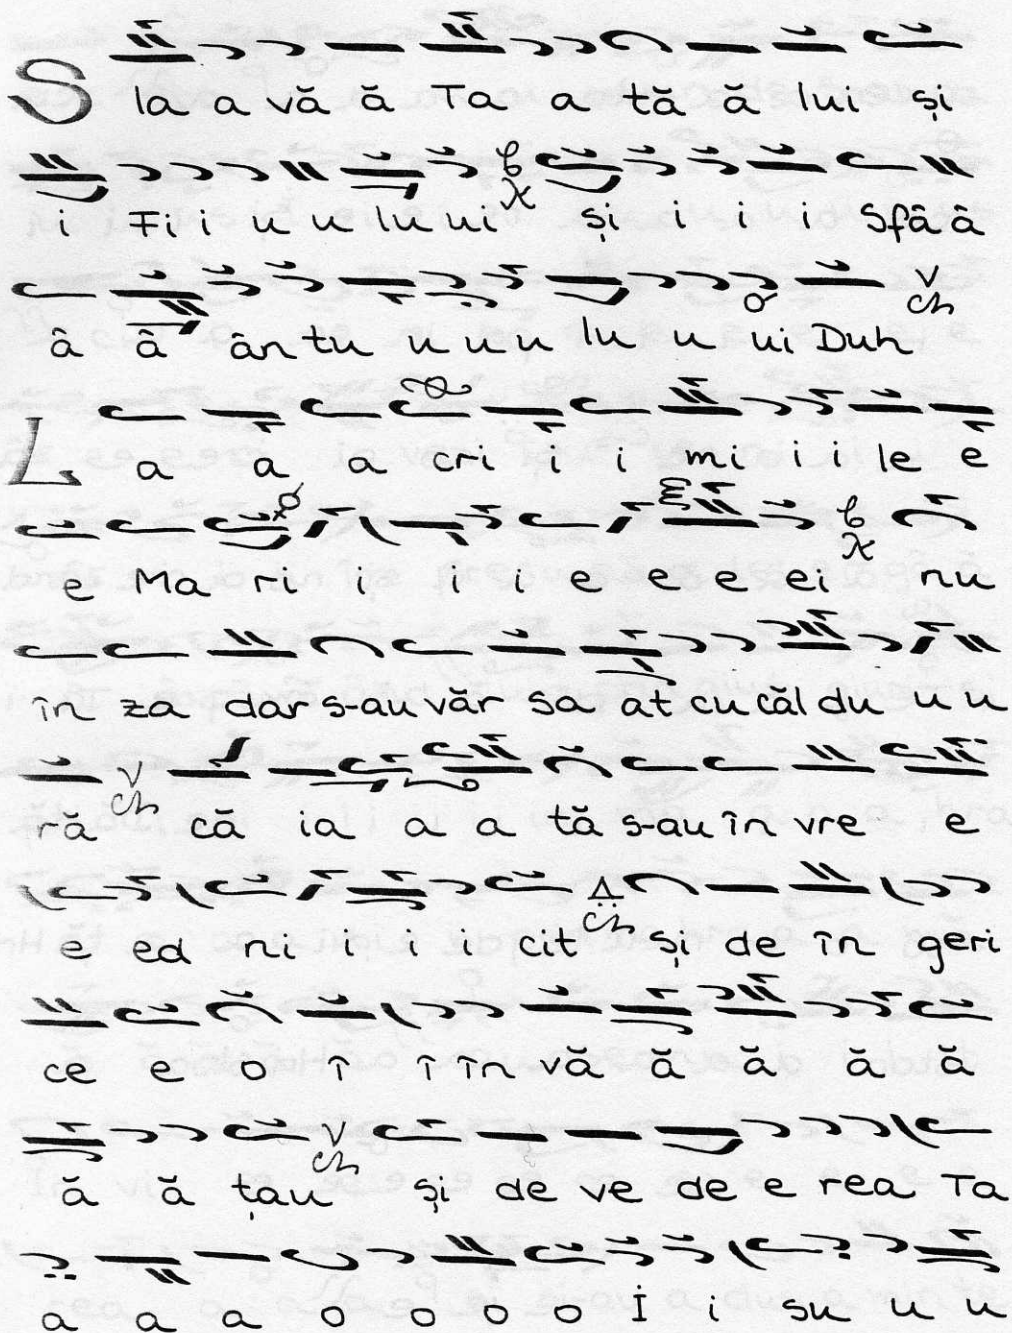 S la a vă ă Ta a tă ă lui și
i Fi i u u lu ui și i i i Sfâ â
â â ân tu u u u lu u ui Duh
L a a a cri i i mi i i le e
e Ma ri i i i e e e ei nu
în za dar s-au văr sa at cu căl du u u
ră că ia a a tă s-au în vre e
e ed ni i i i cit și de în geri
ce e o î î în vă ă ă ă ă
ă ă tau și de ve de e rea Ta
a a a o o o o İ i su u u